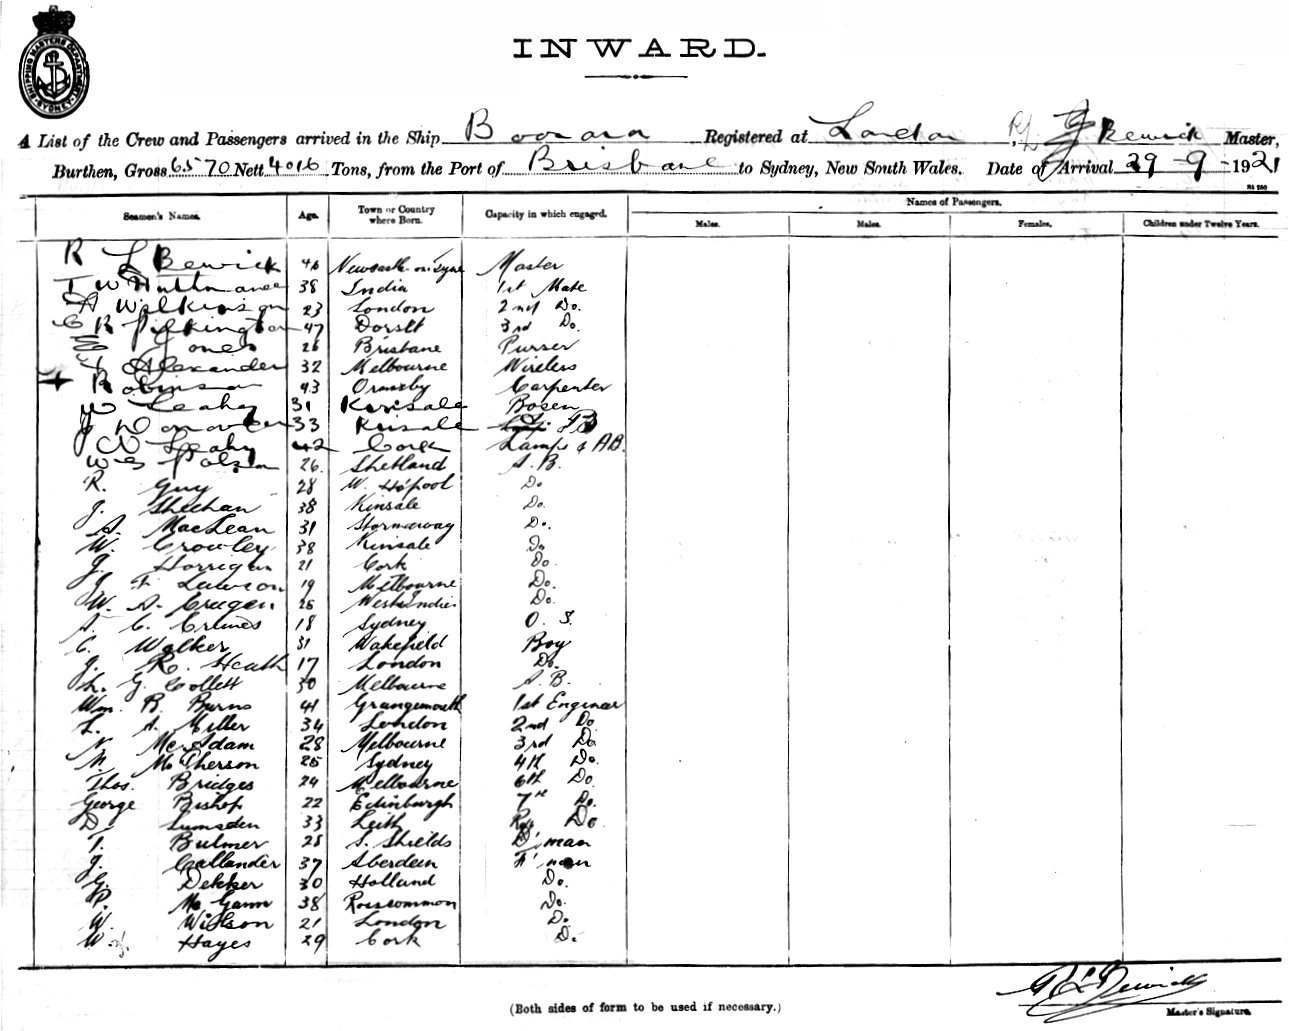 SHIPPING MASTERS DEPARTMENT SYDNEY
INWARD.
A List of the Crew and Passengers arrived in the Ship Boonara Registered at London, R L Bewick Master,
Burthen, Gross 6570 Nett 4016 Tons, from the Port of Brisbane to Sydney, New South Wales. Date of Arrival 29-9-1921
Seamen's Names. Age. Town or Country where Born. Capacity in which engaged. Names of Passengers.
Males. Males. Females. Children under Twelve Years.
R L Bewick 46 Newcastle-on-Tyne Master
T W 38 India 1st Mate
A Wilkinson 23 London 2nd Do.
C R Pilkington 47 Dorset 3rd Do.
Jones 26 Brisbane Purser
Alexander 32 Melbourne Wireless
+ Robinson 43 Ormesby Carpenter
W Leahy 31 Kinsale Bosen
J Donovan 33 Kinsale
Leahy 42 Cork Lamps & AB.
W G Polson 26. Shetland A.B.
R. Guy 28 W. H'pool Do
J. Sheehan 38 Kinsale Do.
A. MacLean 31 Stornoway Do.
W. Crowley 38 Kinsale Do
J. Horrigan 21 Cork Do.
J F Lawson 19 Melbourne Do.
W. A. Crugen 25 West Indies Do.
A. C. Crimes 18 Sydney O. S.
C. Walker 31 Wakefield Boy
J. R. Heath 17 London Do.
L. G. Collett 30 Melbourne A.B.
Wm. B. Burns 41 Grangemouth 1st Engineer
L. A. Miller 34 London 2nd Do
N. McAdam 28 Melbourne 3rd Do
N. McPherson 25 Sydney 4th Do.
Thos. Bridges 24 Melbourne 6th Do
George Bishop 22 Edinburgh 7th Do.
D. Lumsden 33 Leith Do
T. Bulmer 28 S. Shields D'man
J. Callander 37 Aberdeen F'man
G. Dekker 30 Holland Do.
P. McGann 38 Roscommon Do.
W. Wilson 21 London Do
W. J. Hayes 29 Cork D.
R L Bewick
Master's Signature.
(Both sides of form to be used if necessary.)